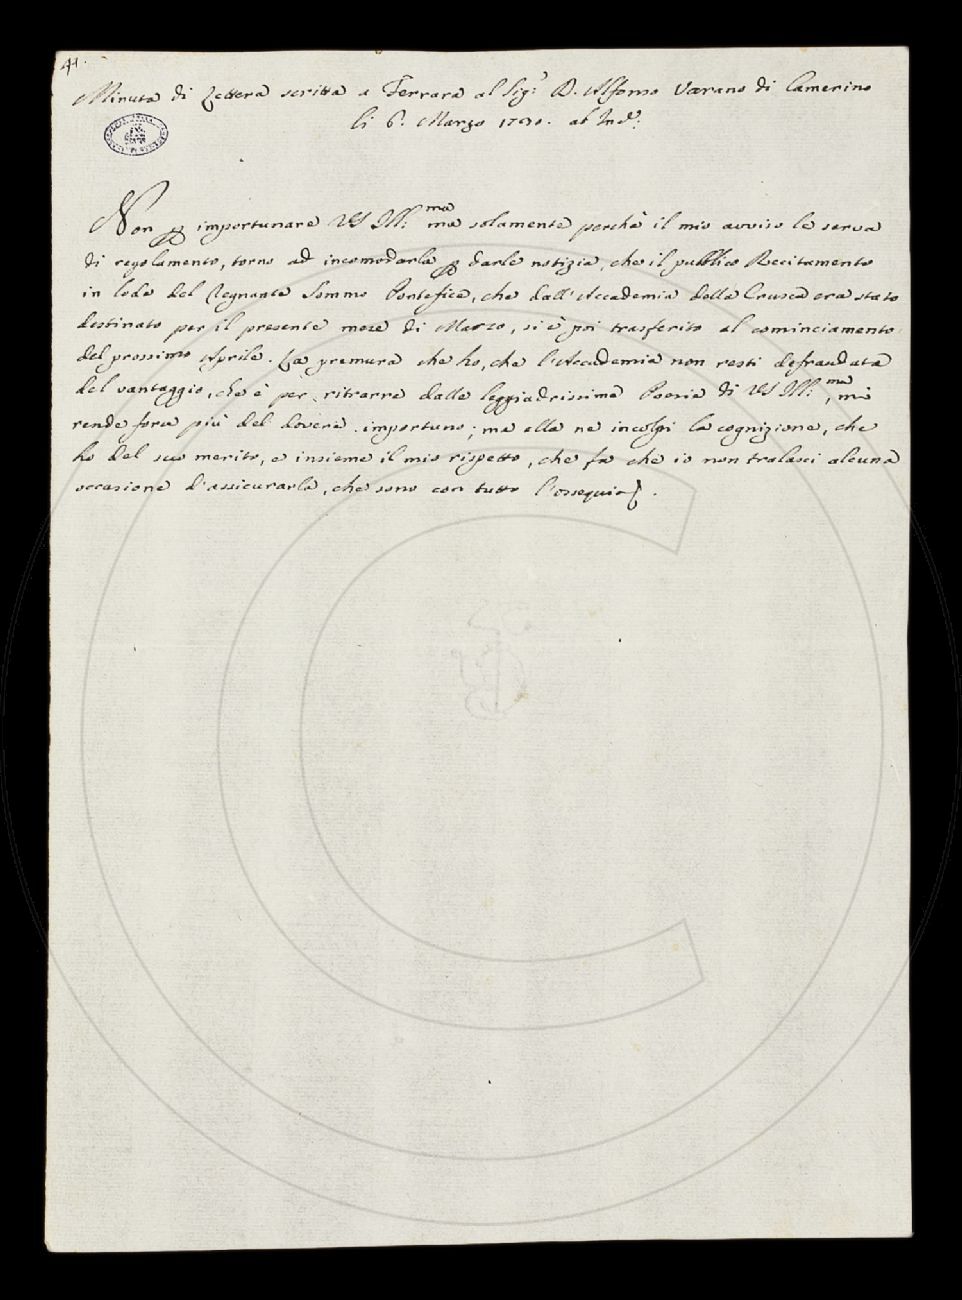 41.
Minuta di Lettera scritta a Ferrara al Sig.r D. Alfonso Varano di Camerino
li 6. Marzo
Non importunare VS Ill.ma ma solamente perchè il mio avviso le serva
di regolamento, torno ad incomodarla darle notizia, che il pubblico Recitamento
in lode del Regnante Sommo Pontefice, che dall'Accademia della Crusca era stato
destinato per il presente mese di Marzo, si è poi trasferito al cominciamento
del prossimo Aprile. La premura che ho, che l'Accademia non resti defraudata
del vantaggio, che è per ritrarre dalla leggiadrissima Poesia di VS Ill.ma, mi
rende forse più del dovere importuno; ma ella ne incolpi la cognizione, che
ho del suo merito, e insieme il mio rispetto, che fa che io non tralasci alcuna
occasione d'assicurarla, che sono con tutto l'ossequio